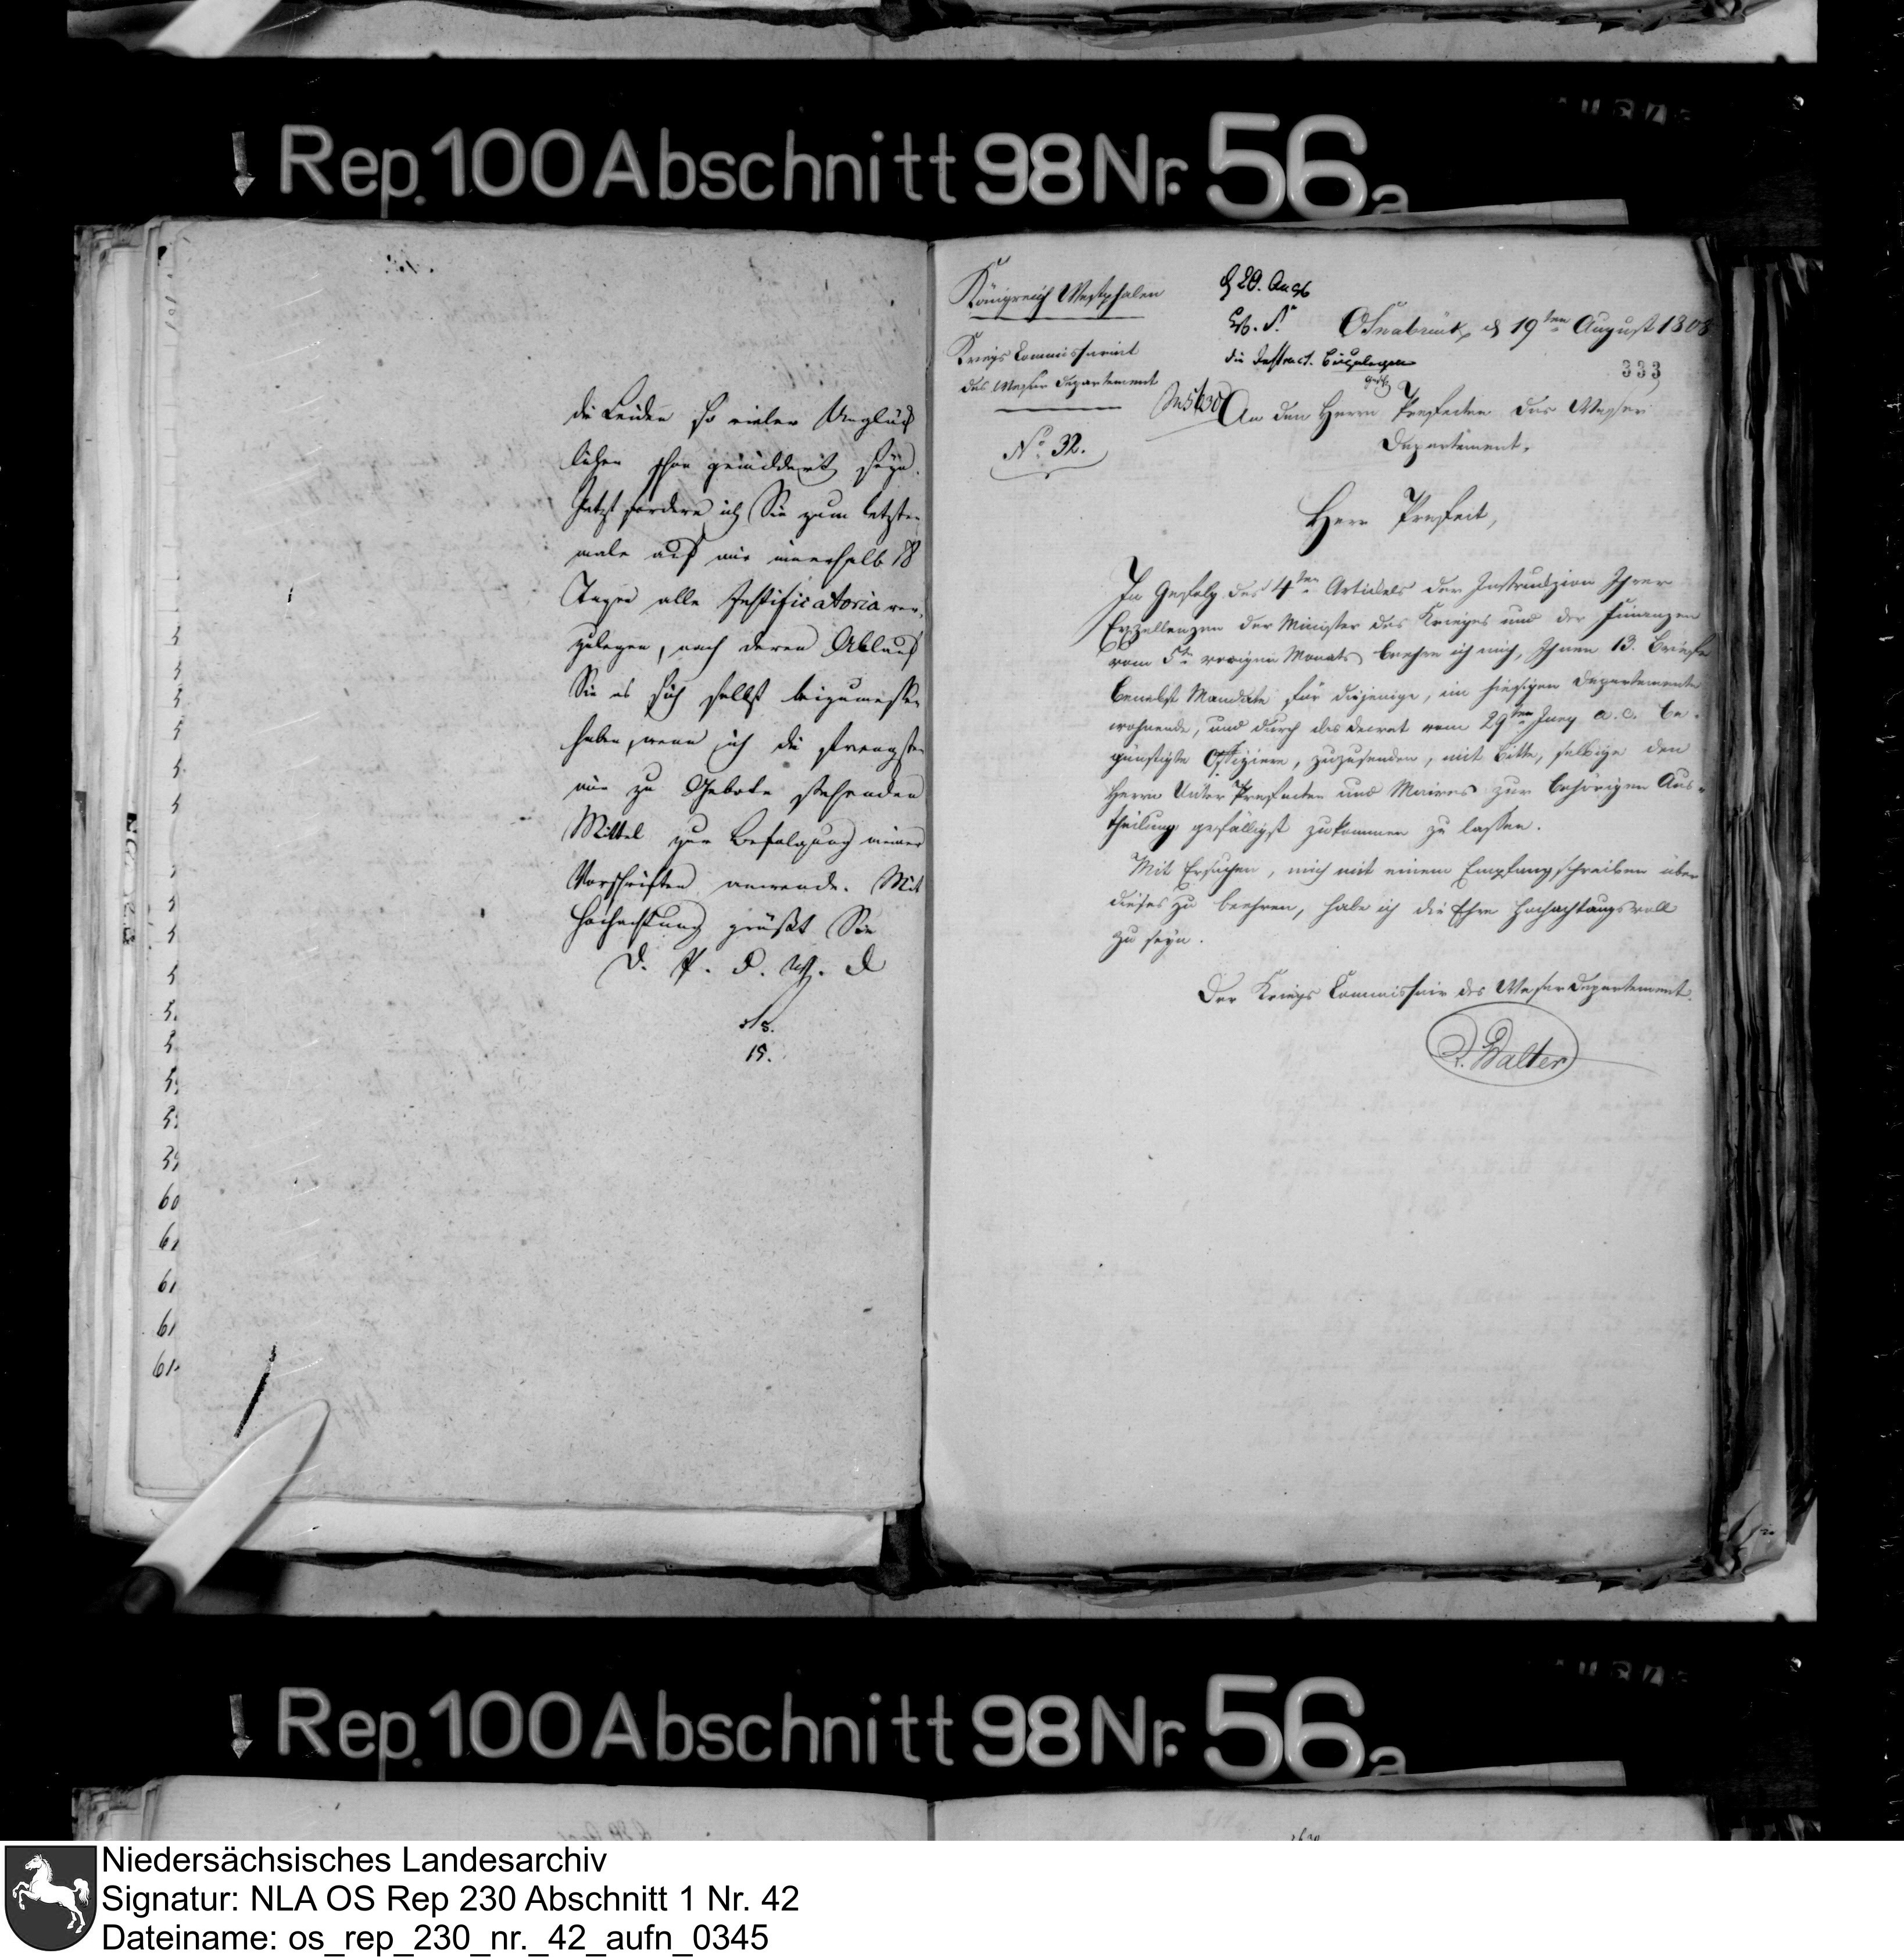 Rep. 100 Abschnitt 98 Nr. 56a
die Leiden so vieler Unglück
lichen schon gemildert seyn.
Jetzt fordere ich Sie zum letzten
male auf mir innerhalb 8
Tagen alle Justificatoria vor,
zulegen, nach deren Ablauf
Sie es sich selbst beizumessen
haben, wenn ich die strengsten
mir zu Gebote stehenden
Mittel zur Befolgung meiner
Vorschriften anwende. Mit
Hochachtung grüßt Sie
D. P. d. W. D
15.
5
5
5
5
5
5
5
5
5
5.
5
60
61
61
61
61
Königreich Westphalen
Kriegs Commissariat
des Weser Departement
No. 32.
d 20. Aug
die Instruct. beizulegen
Osnabrück, d 19ten August 1808
333
An den Herrn Prefecten des Weser
Departement.
Herr Prefect,
In Gefolg des 4ten Artickels der Instrukzion Ihrer
Exzellenzen der Minister des Krieges und der Finanzen
vom 5ten vorigen Monats beehre ich mich, Ihnen 13. Briefe
benebst Mandate für diejenige, im hiesigen Departemente
wohnende, und durch das Decret vom 29ten Juny a. c. be-
günstigte Offiziere, zuzusenden, mit Bitte, selbige den
Herrn Unter Prefecten und Maires zur behörigen Aus-
theilung gefälligst zukommen zu lassen.
Mit Ersuchen, mich mit einem Empfangschreiben über
dieses zu beehren, habe ich die Ehre hochachtungsvoll
zu seyn.
Der Kriegs Commissair des Weser Departement.
Walter
Rep. 100 Abschnitt 98 Nr. 56a
Niedersächsisches Landesarchiv
Signatur: NLA OS Rep 230 Abschnitt 1 Nr. 42
Dateiname: os_rep_230_nr._42_aufn_0345